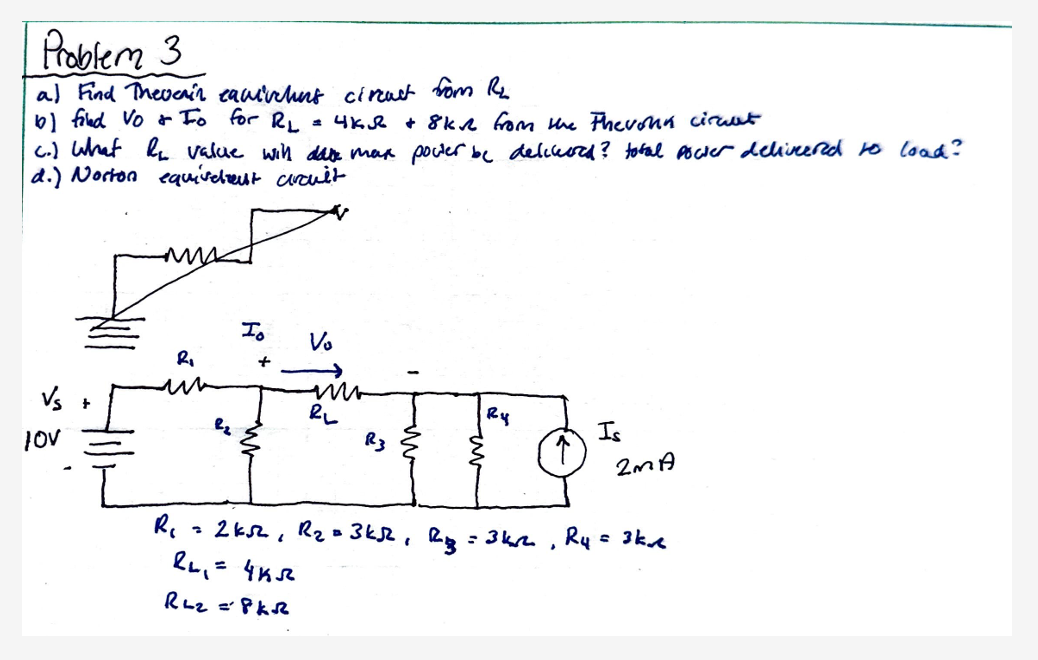 Problem 3
a) Find Thevenin equivalent circuit from RL
b) find Vo & Io for RL = 4kΩ + 8kΩ from the Thevenin circuit
c.) What RL value will max power be delivered? total power delivered to load?
d.) Norton equivalent circuit
Io
Vo
R1
+
-
Vs +
RL
R4
R2
R3
Is
10V
-
2mA
R1 = 2kΩ, R2 = 3kΩ, R3 = 3kΩ, R4 = 3kΩ
RL1 = 4kΩ
RL2 = 8kΩ